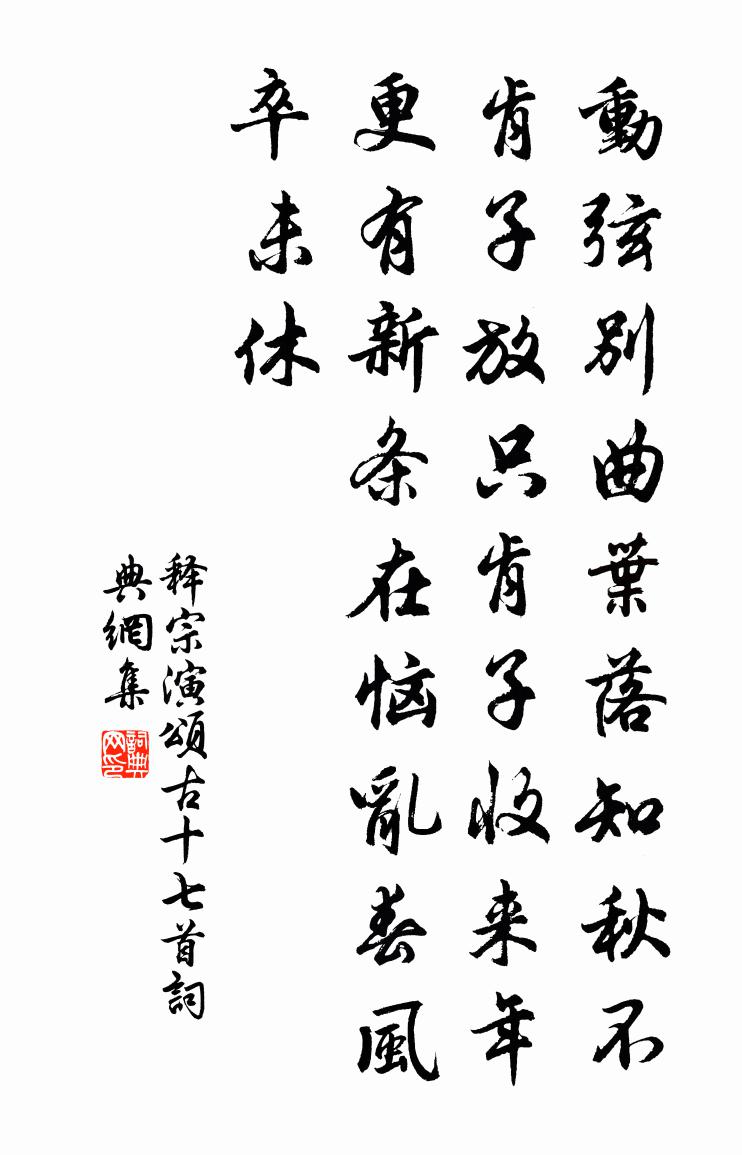 動弦別曲葉落知秋不
肯子放只肯子收来年
更有新条在恼亂春風
卒未休
释宗演頌古十七首詞
典網集
詞典网印